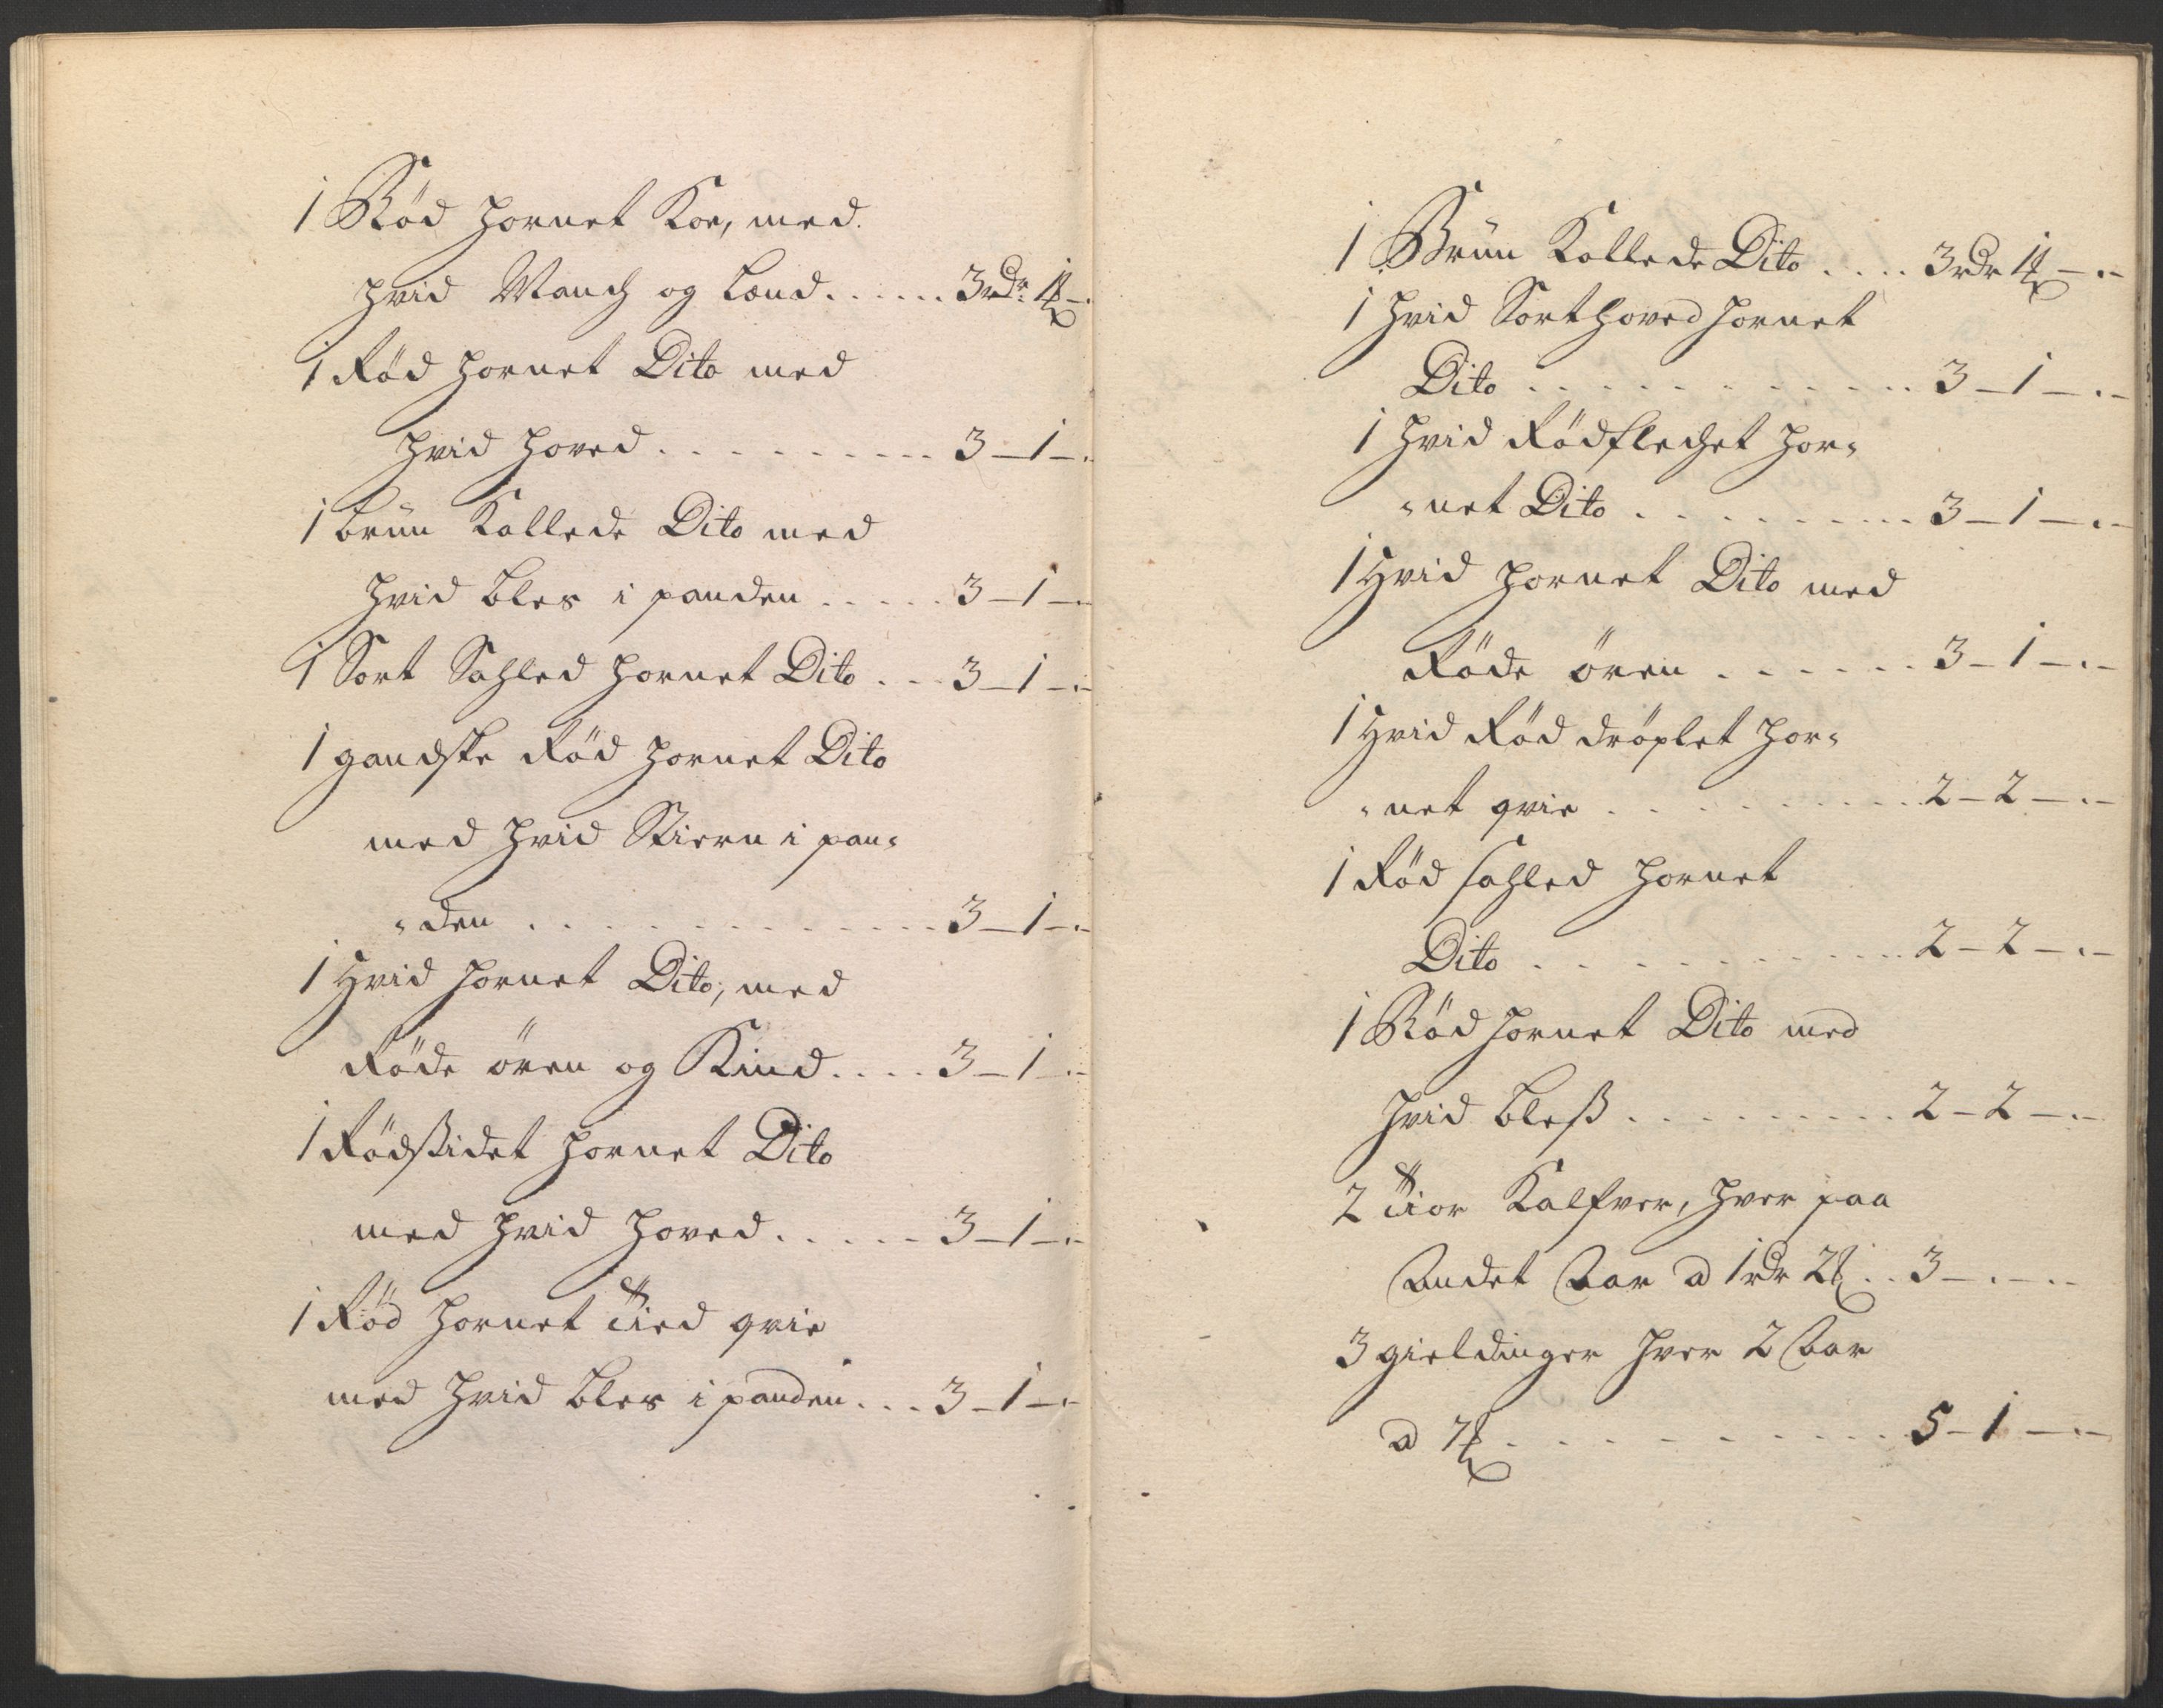 1 Rød hornet Koe, med.
hvid Manch og Lend . . . . . . 3rdr 1 ℔ - .
1 Rød hornet Dito med
hvid hoved . . . . . . . . . . 3 - 1 - .
1 brün Kollede Dito med
hvid bles i panden . . . . . 3 - 1 - . -
1 Sort Sahled hornet Dito . . . 3 - 1 - . -
1 gandske Rød hornet Dito
med hvid Stiern i pan=
=den . . . . . . . . . . . . . . 3 - 1 - . -
1 Hvid hornet Dito, med
Røde ören og Kind . . . . 3 - 1 - . -
1 Rødsidet hornet Dito
med hvid hoved . . . . . 3 - 1 - . -
1 Rød hornet qvie
med hvid bles i panden . . . 3 - 1 - . -
1 Brün Kollede Dito . . . . 3rdr 1 ℔ - . -
1 hvid Sorthoved hornet
Dito . . . . . . . . . . . . 3 - 1 - . -
1 hvid Rødflechet hor=
=net Dito . . . . . . . . . 3 - 1 - . -
1 Hvid hornet Dito med
Røde ören . . . . . . 3 - 1 - . -
1 Hvid Rød dröplet hor=
=net qvie . . . . . . . . . 2 - 2 - . -
1 Rød sahled hornet
Dito . . . . . . . . . . . . 2 - 2 - . -
1 Rød hornet Dito med
hvid bless . . . . . . . . . 2 - 2 - . -
2 Kalfver, hver paa
Andet Aar a 1 rdr 2 ℔ . . 3 - . - . -
3 gieldinger hver 2 Aar
a 7 ℔ . . . . . . . . . . . 5 - 1 - . -